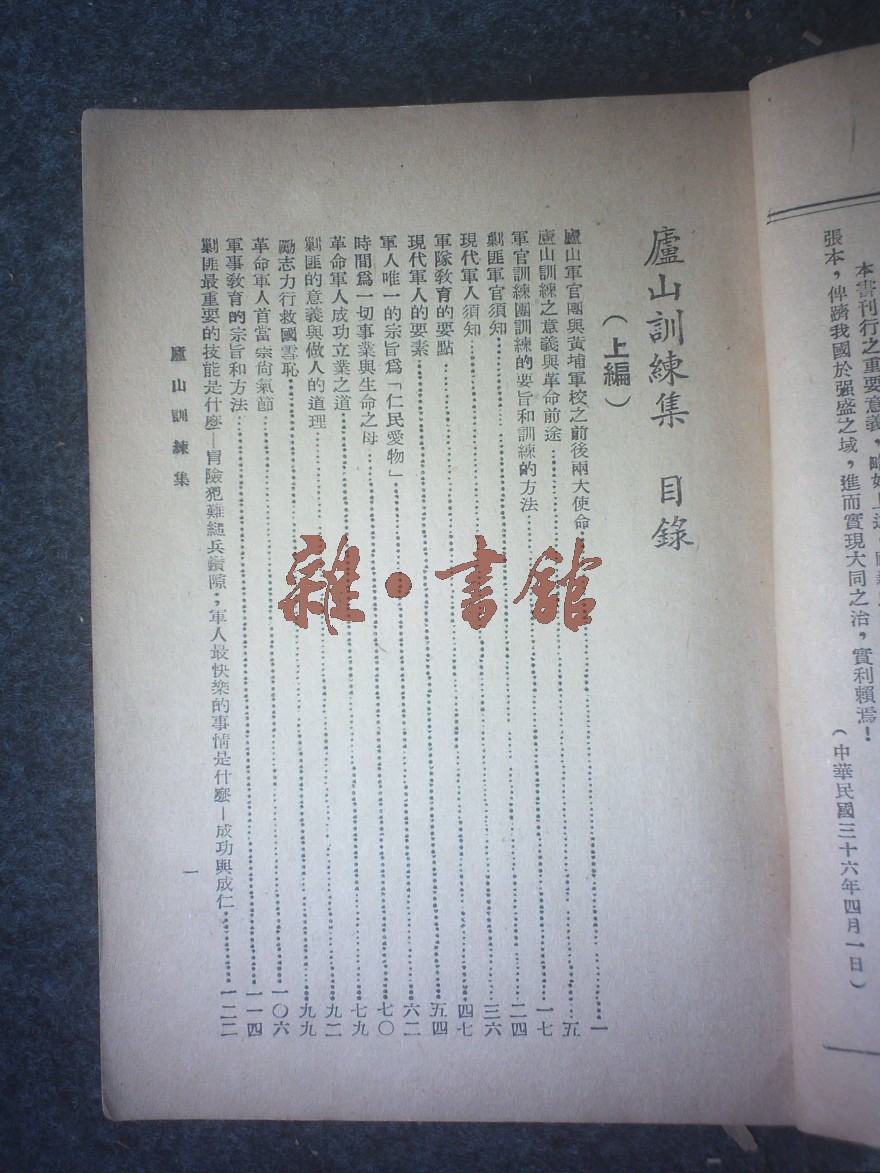 本書刊行之重要意義，略如上述，
張本，俾躋我國於強盛之域，進而實現大同之治，實利賴焉！
（中華民國三十六年四月一日）
廬山訓練集　目錄
（上編）
廬山軍官團與黃埔軍校之前後兩大使命……一
廬山訓練之意義與革命前途……五
軍官訓練團訓練的要旨和訓練的方法……一七
剿匪軍官須知……二四
現代軍人須知……三六
軍隊教育的要點……四七
現代軍人的要素……五四
軍人唯一的宗旨爲「仁民愛物」……六二
時間爲一切事業與生命之母……七〇
革命軍人成功立業之道……七九
剿匪的意義與做人的道理……九二
勵志力行救國雪恥……九九
革命軍人首當崇尚氣節……一〇六
軍事教育的宗旨和方法……一一四
剿匪最重要的技能是什麼—冒險犯難縋兵鑽隙；軍人最快樂的事情是什麼—成功與成仁……一二二
廬山訓練集
一
雜·書館